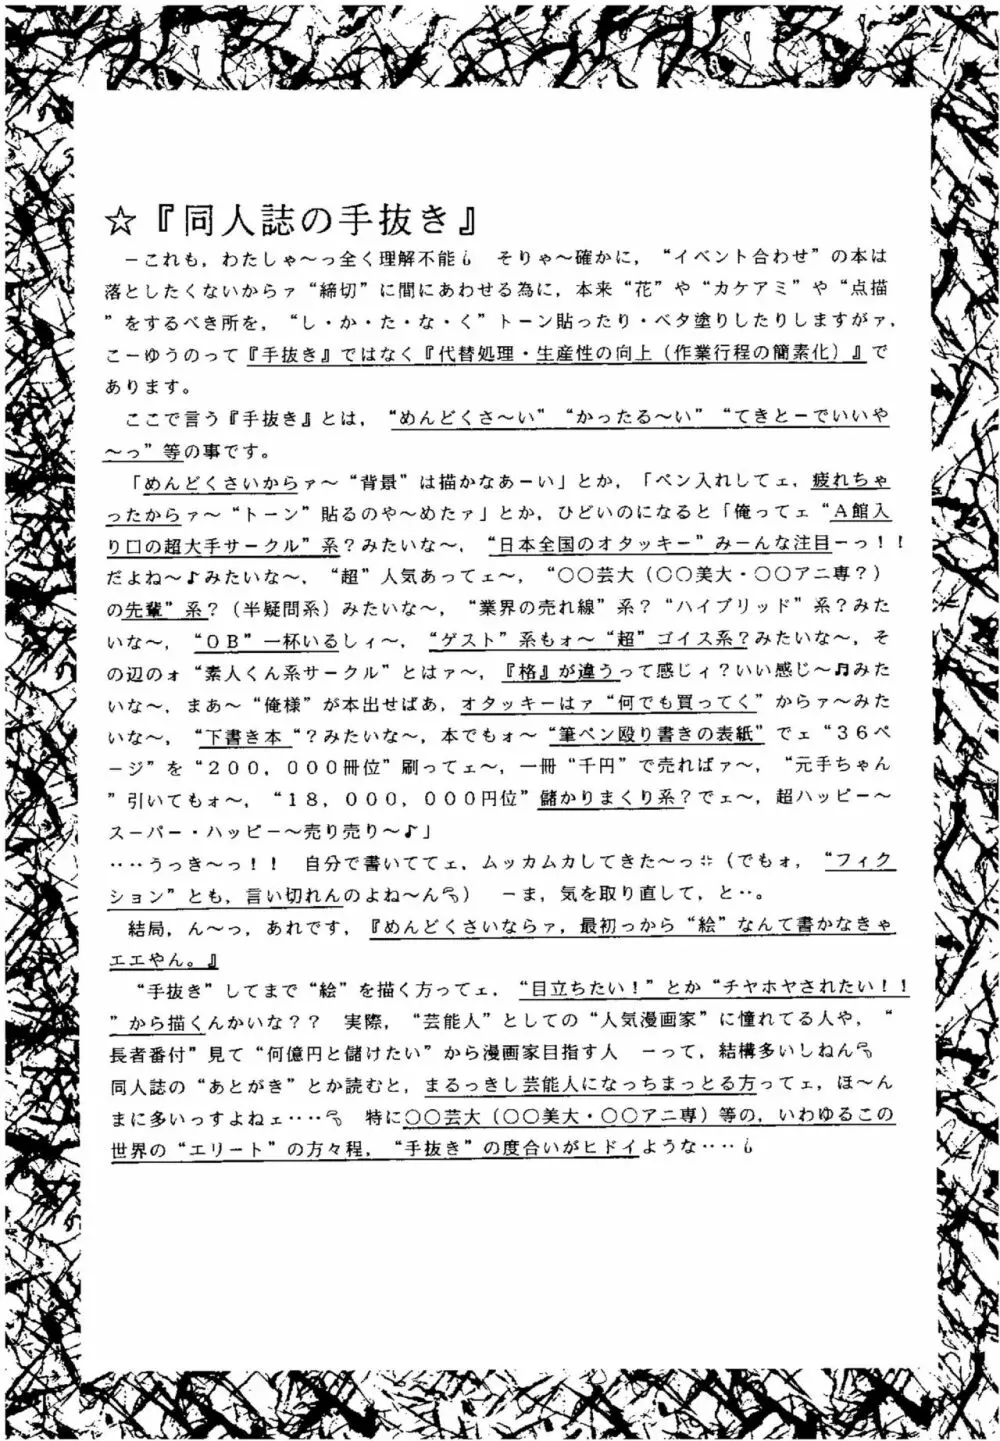 ☆『同人誌の手抜き』
－これも，わたしゃ～っ全く理解不能💧　そりゃ～確かに，“イベント合わせ”の本は
落としたくないからァ“締切”に間にあわせる為に，本来“花”や“カケアミ”や“点描
”をするべき所を，“し・か・た・な・く”トーン貼ったり・ベタ塗りしたりしますがァ，
こーゆうのって『手抜き』ではなく『代替処理・生産性の向上（作業行程の簡素化）』で
あります。
ここで言う『手抜き』とは，“めんどくさ～い”“かったる～い”“てきとーでいいや
～っ”等の事です。
「めんどくさいからァ～“背景”は描かなあーい」とか，「ペン入れしてェ，疲れちゃ
ったからァ～“トーン”貼るのや～めたァ」とか，ひどいのになると「俺ってェ“Ａ館入
り口の超大手サークル”系？みたいな～，“日本全国のオタッキー”みーんな注目ーっ！！
だよね～♪みたいな～，“超”人気あってェ～，“○○芸大（○○美大・○○アニ専？）
の先輩”系？（半疑問系）みたいな～，“業界の売れ線”系？“ハイブリッド”系？みた
いな～，“ＯＢ”一杯いるしィ～，“ゲスト”系もォ～“超”ゴイス系？みたいな～，そ
の辺のォ“素人くん系サークル”とはァ～，『格』が違うって感じィ？いい感じ～♬みた
いな～，まあ～“俺様”が本出せばあ，オタッキーはァ“何でも買ってく”からァ～みた
いな～，“下書き本“？みたいな～，本でもォ～“筆ペン殴り書きの表紙”でェ“３６ペ
ージ”を“２００，０００冊位”刷ってェ～，一冊“千円”で売ればァ～，“元手ちゃん
”引いてもォ～，“１８，０００，０００円位”儲かりまくり系？でェ～，超ハッピー～
スーパー・ハッピー～売り売り～♪」
‥‥うっき～っ！！　自分で書いててェ，ムッカムカしてきた～っ💢（でもォ，“フィク
ション”とも，言い切れんのよね～ん）　－ま，気を取り直して，と‥。
結局，ん～っ，あれです，『めんどくさいならァ，最初っから“絵”なんて書かなきゃ
エエやん。』
“手抜き”してまで“絵”を描く方ってェ，“目立ちたい！”とか“チヤホヤされたい！！
”から描くんかいな？？　実際，“芸能人”としての“人気漫画家”に憧れてる人や，“
長者番付”見て“何億円と儲けたい”から漫画家目指す人　－って，結構多いしねん
同人誌の“あとがき”とか読むと，まるっきし芸能人になっちまっとる方ってェ，ほ～ん
まに多いっすよねェ‥‥　特に○○芸大（○○美大・○○アニ専）等の，いわゆるこの
世界の“エリート”の方々程，“手抜き”の度合いがヒドイような‥‥💧